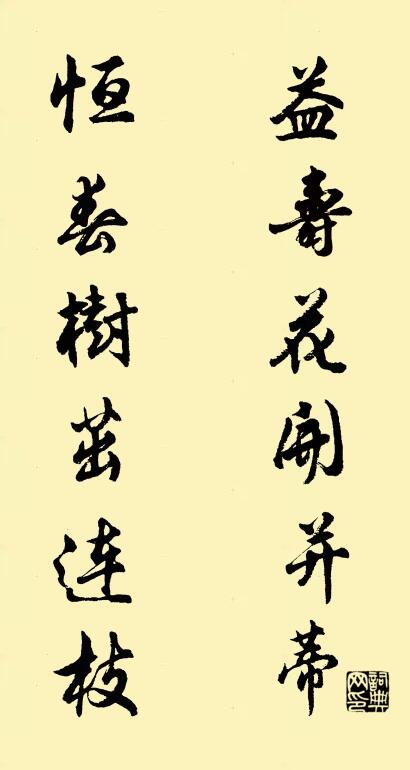 益壽花開并蒂
恒春樹茁連枝
詞典网印